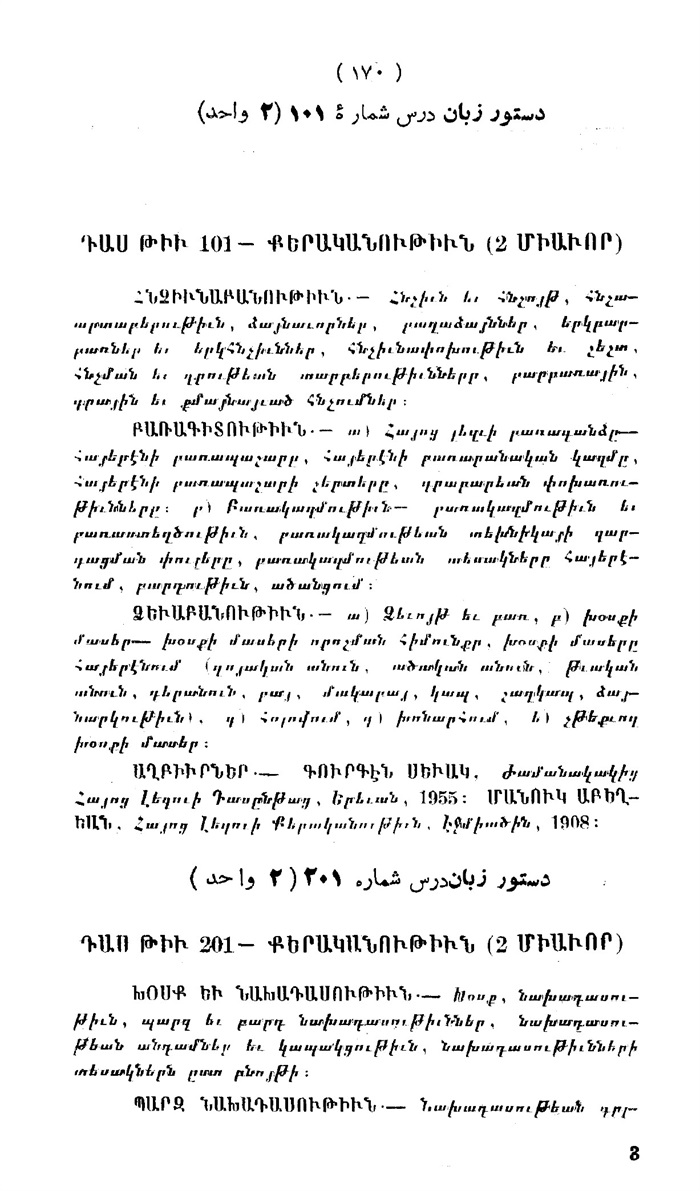 ( ۱۷۰ )
دستور زبان درس شماره ۱۰۱ (۲ واحد)
ԴԱՍ ԹԻՒ 101— ՔԵՐԱԿԱՆՈՒԹԻՒՆ (2 ՄԻԱՒՈՐ)
ՀՆՉԻՒՆԱԲԱՆՈՒԹԻՒՆ.— Հնչիւն եւ Հնչոյթ, Հնչա—
արտաբերութիւն, ձայնաւորներ, բաղաձայններ, երկբար—
բառներ եւ երկՀնչիւններ, Հնչիւնափոխութիւն եւ շեշտ,
Հնչման եւ գրութեան տարբերութիւնները, բարբառային,
գրային եւ քմայնացած Հնչումներ:
ԲԱՌԱԳԻՏՈՒԹԻՒՆ.— ա) Հայոց լեզուի բառագանձը—
Հայերէնի բառապաշարը, Հայերէնի բառարանական կազմը,
Հայերէնի բառապաշարի շերտերը, գրաբարեան փոխառու—
թիւնները: բ) Բառակազմութիւն— բառակազմութիւն եւ
բառաստեղծութիւն, բառակազմութեան տեխնիկայի զար—
գացման փուլերը, բառակազմութեան տեսակները Հայերէ—
նում, բարդութիւն, ածանցում:
ՁԵՒԱԲԱՆՈՒԹԻՒՆ.— ա) Ձեւոյթ եւ բառ, բ) խօսքի
մասեր— խօսքի մասերի որոշման Հիմունքր, խօսքի մասերը
Հայերէնում (գոյական անուն, ածական անուն, թւական
անուն, դերանուն, բայ, մակբայ, կապ, շաղկապ, ձայ—
նարկութիւն), գ) Հոլովում, դ) խոնարՀում, ե) չթեքւող
խօսքի մասեր:
ԱՂԲԻՒՐՆԵՐ.— ԳՈՒՐԳԷՆ ՍԵՒԱԿ, Ժամանակակից
Հայոց Լեզուի Դասընթաց, Երեւան, 1955: ՄԱՆՈՒԿ ԱԲԵՂ—
ԵԱՆ, Հայոց Լեզուի Քերականութիւն, Էջմիածին, 1908:
دستور زبان درس شماره ۲۰۱ (۲ واحد)
ԴԱՍ ԹԻՒ 201— ՔԵՐԱԿԱՆՈՒԹԻՒՆ (2 ՄԻԱՒՈՐ)
ԽՕՍՔ ԵՒ ՆԱԽԱԴԱՍՈՒԹԻՒՆ.— Խօսք, նախադասու—
թիւն, պարզ եւ բարդ նախադասութիւններ, նախադասու—
թեան անդամներ եւ կապակցութիւն, նախադասութիւնների
տեսակներն ըստ բնոյթի:
ՊԱՐԶ ՆԱԽԱԴԱՍՈՒԹԻՒՆ.— Նախադասութեան գըլ—
3